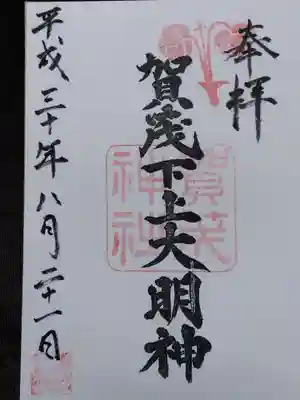 奉拝
賀茂下上大明神
賀茂神社
平成三十年八月二十一日